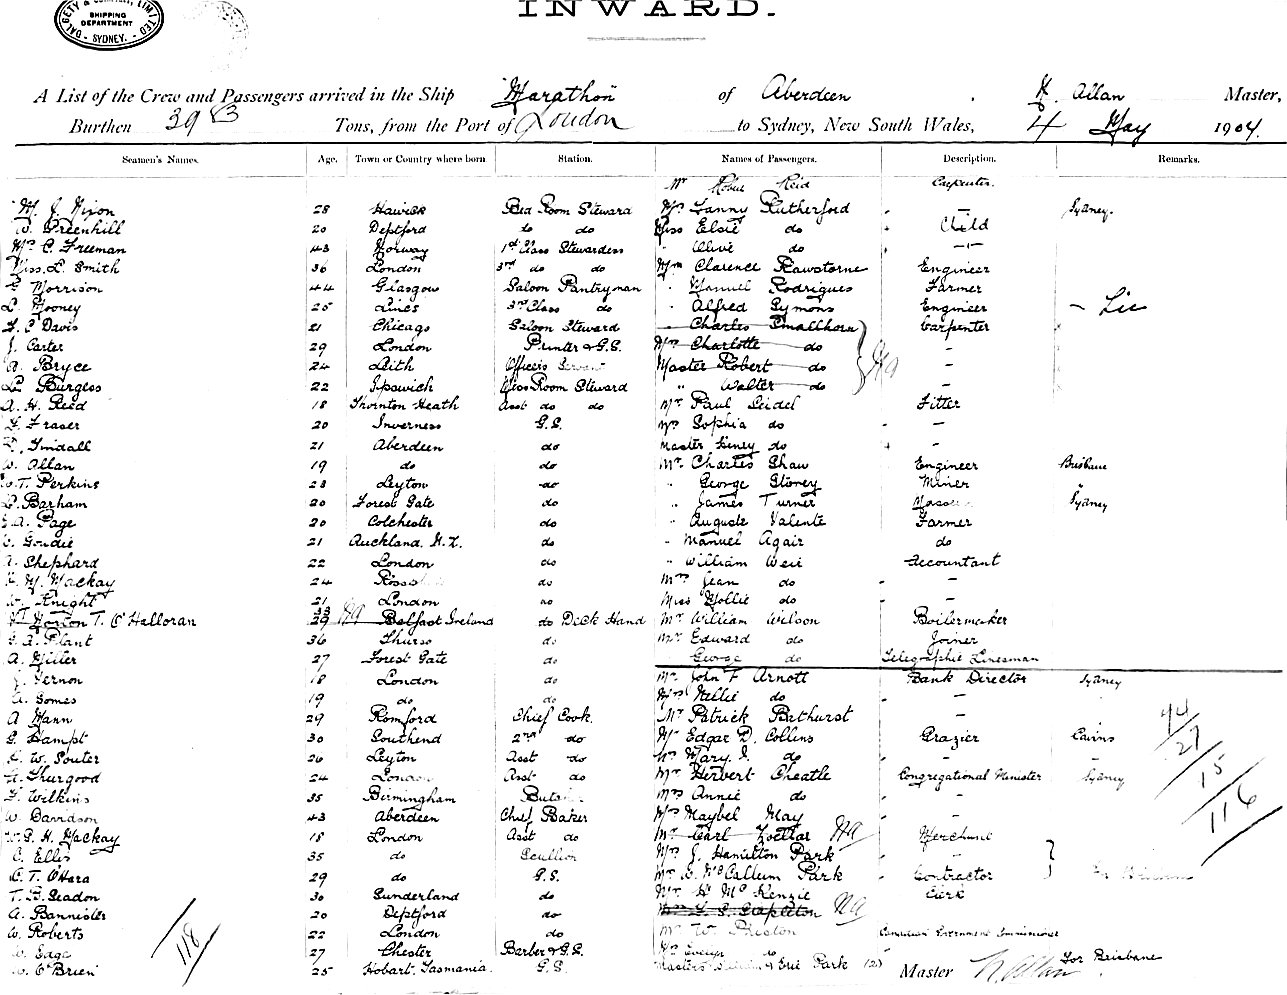 DALGETY & COMPANY, LIMITED
SHIPPING DEPARTMENT
SYDNEY.
INWARD.
A List of the Crew and Passengers arrived in the Ship Marathon of Aberdeen, Allan Master,
Burthen 3983 Tons, from the Port of London to Sydney, New South Wales, 4 May 1904.
Seamen's Names. Age. Town or Country where born Station. Names of Passengers. Description. Remarks.
Mr Reid Carpenter.
M. J. Nixon 28 Hawick Bed Room Steward Mrs Fanny Rutherford - Sydney.
W. Greenhill 20 Deptford do do Miss Elsie do Child
Mrs C. Freeman 43 Norway 1st Class Stewardess " Olive do -"-
Miss L. Smith 36 London 3rd do do Clarence Rawstorne Engineer
Morrison 44 Glasgow Saloon Pantryman " Manuel Rodrigues Farmer
Mooney 25 Lines 3rd Class do " Alfred Symons Engineer
C Davis 21 Chicago Saloon Steward " Charles Smallhorn Carpenter
J. Carter 29 London Printer & G.S. Mrs Charlotte do -
A. Bryce 24 Leith Officers Servant Master Robert do -
Burgess 22 Ipswich Mess Room Steward " Walter do -
A. H. Reed 18 Thornton Heath Asst do do Mr Paul Seidel Fitter
Fraser 20 Inverness G.S. Mrs Sophia do -
Tindall 21 Aberdeen do Master do -
W. Allan 19 do do Mr. Charles Shaw Engineer Brisbane
T. Perkins 23 Leyton do " George Storey Miner "
Barham 20 Forest Gate do " James Turner Mason Sydney
A. Page 20 Colchester do " Auguste Valente Farmer
Goudie 21 Auckland. N.Z. do " Manuel Agair do
A. Shephard 22 London do " William Weir Accountant
M. Mackay 24 do Mrs Jean do -
W. Knight 21 London do Miss Mollie do -
Horton T. O'Halloran 33 29 Belfast Ireland do Deck Hand Mr William Wilson Boilermaker
Plant 36 Thurso do Mr Edward do Joiner
A. Miller 27 Forest Gate do George do Telegraphic Linesman
J. Vernon 18 London do Mr. John F Arnott Bank Director Sydney
A. Gomes 19 do do Mrs Nellie do -
A Mann 29 Romford Chief Cook. Mr Patrick Bathurst -
G. Hampt 30 Southend 2nd do Mr Edgar D. Collins Grazier Cairns
W. Souter 26 Leyton Asst do Mrs Mary do -
Thurgood 24 London Asst do Mr Herbert Cheatle Congregational Minister Sydney
Wilkins 35 Birmingham Butcher Mrs Annie do -
W. Davidson 43 Aberdeen Chief Baker Mrs Maybel May -
W. G. H. Mackay 18 London Asst do Mr Carl Zoellar Merchant
C. Ellis 35 do Scullion Mrs J. Hamilton Park -
C. T. O'Hara 29 do G.S. Mr D. McCallum Park Contractor
T. B. Seadon 30 Sunderland do H. McKenzie Clerk
A. Bannister 20 Deptford do Stapleton
W. Roberts 22 London do Mr W. Preston Canadian Government Commissioner
W. Edge 27 Chester Barber & G.S. Mrs Evelyn do
W. O'Brien 25 Hobart. Tasmania. G.S. Masters & Eric Park (2) Master Allan For Brisbane
44
27
15
116
118